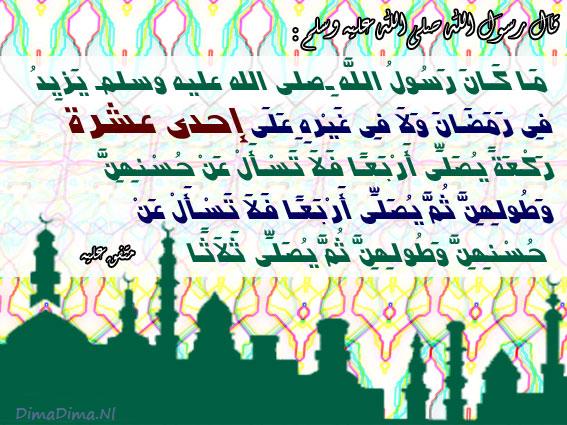 قال رسول الله صلى الله عليه وسلم :
مَا كَانَ رَسُولُ اللَّهِ ـ صلى الله عليه وسلم ـ يَزِيدُ
فِى رَمَضَانَ وَلَا فِى غَيْرِهِ عَلَى إِحدى عشرة
رَكْعَةً يُصَلِّى أَرْبَعًا فَلَا تَسْأَلْ عَنْ حُسْنِهِنَّ
وَطُولِهِنَّ ثُمَّ يُصَلِّى أَرْبَعًا فَلَا تَسْأَلْ عَنْ
حُسْنِهِنَّ وَطُولِهِنَّ ثُمَّ يُصَلِّى ثَلَاثًا
متفق عليه
DimaDima.Nl